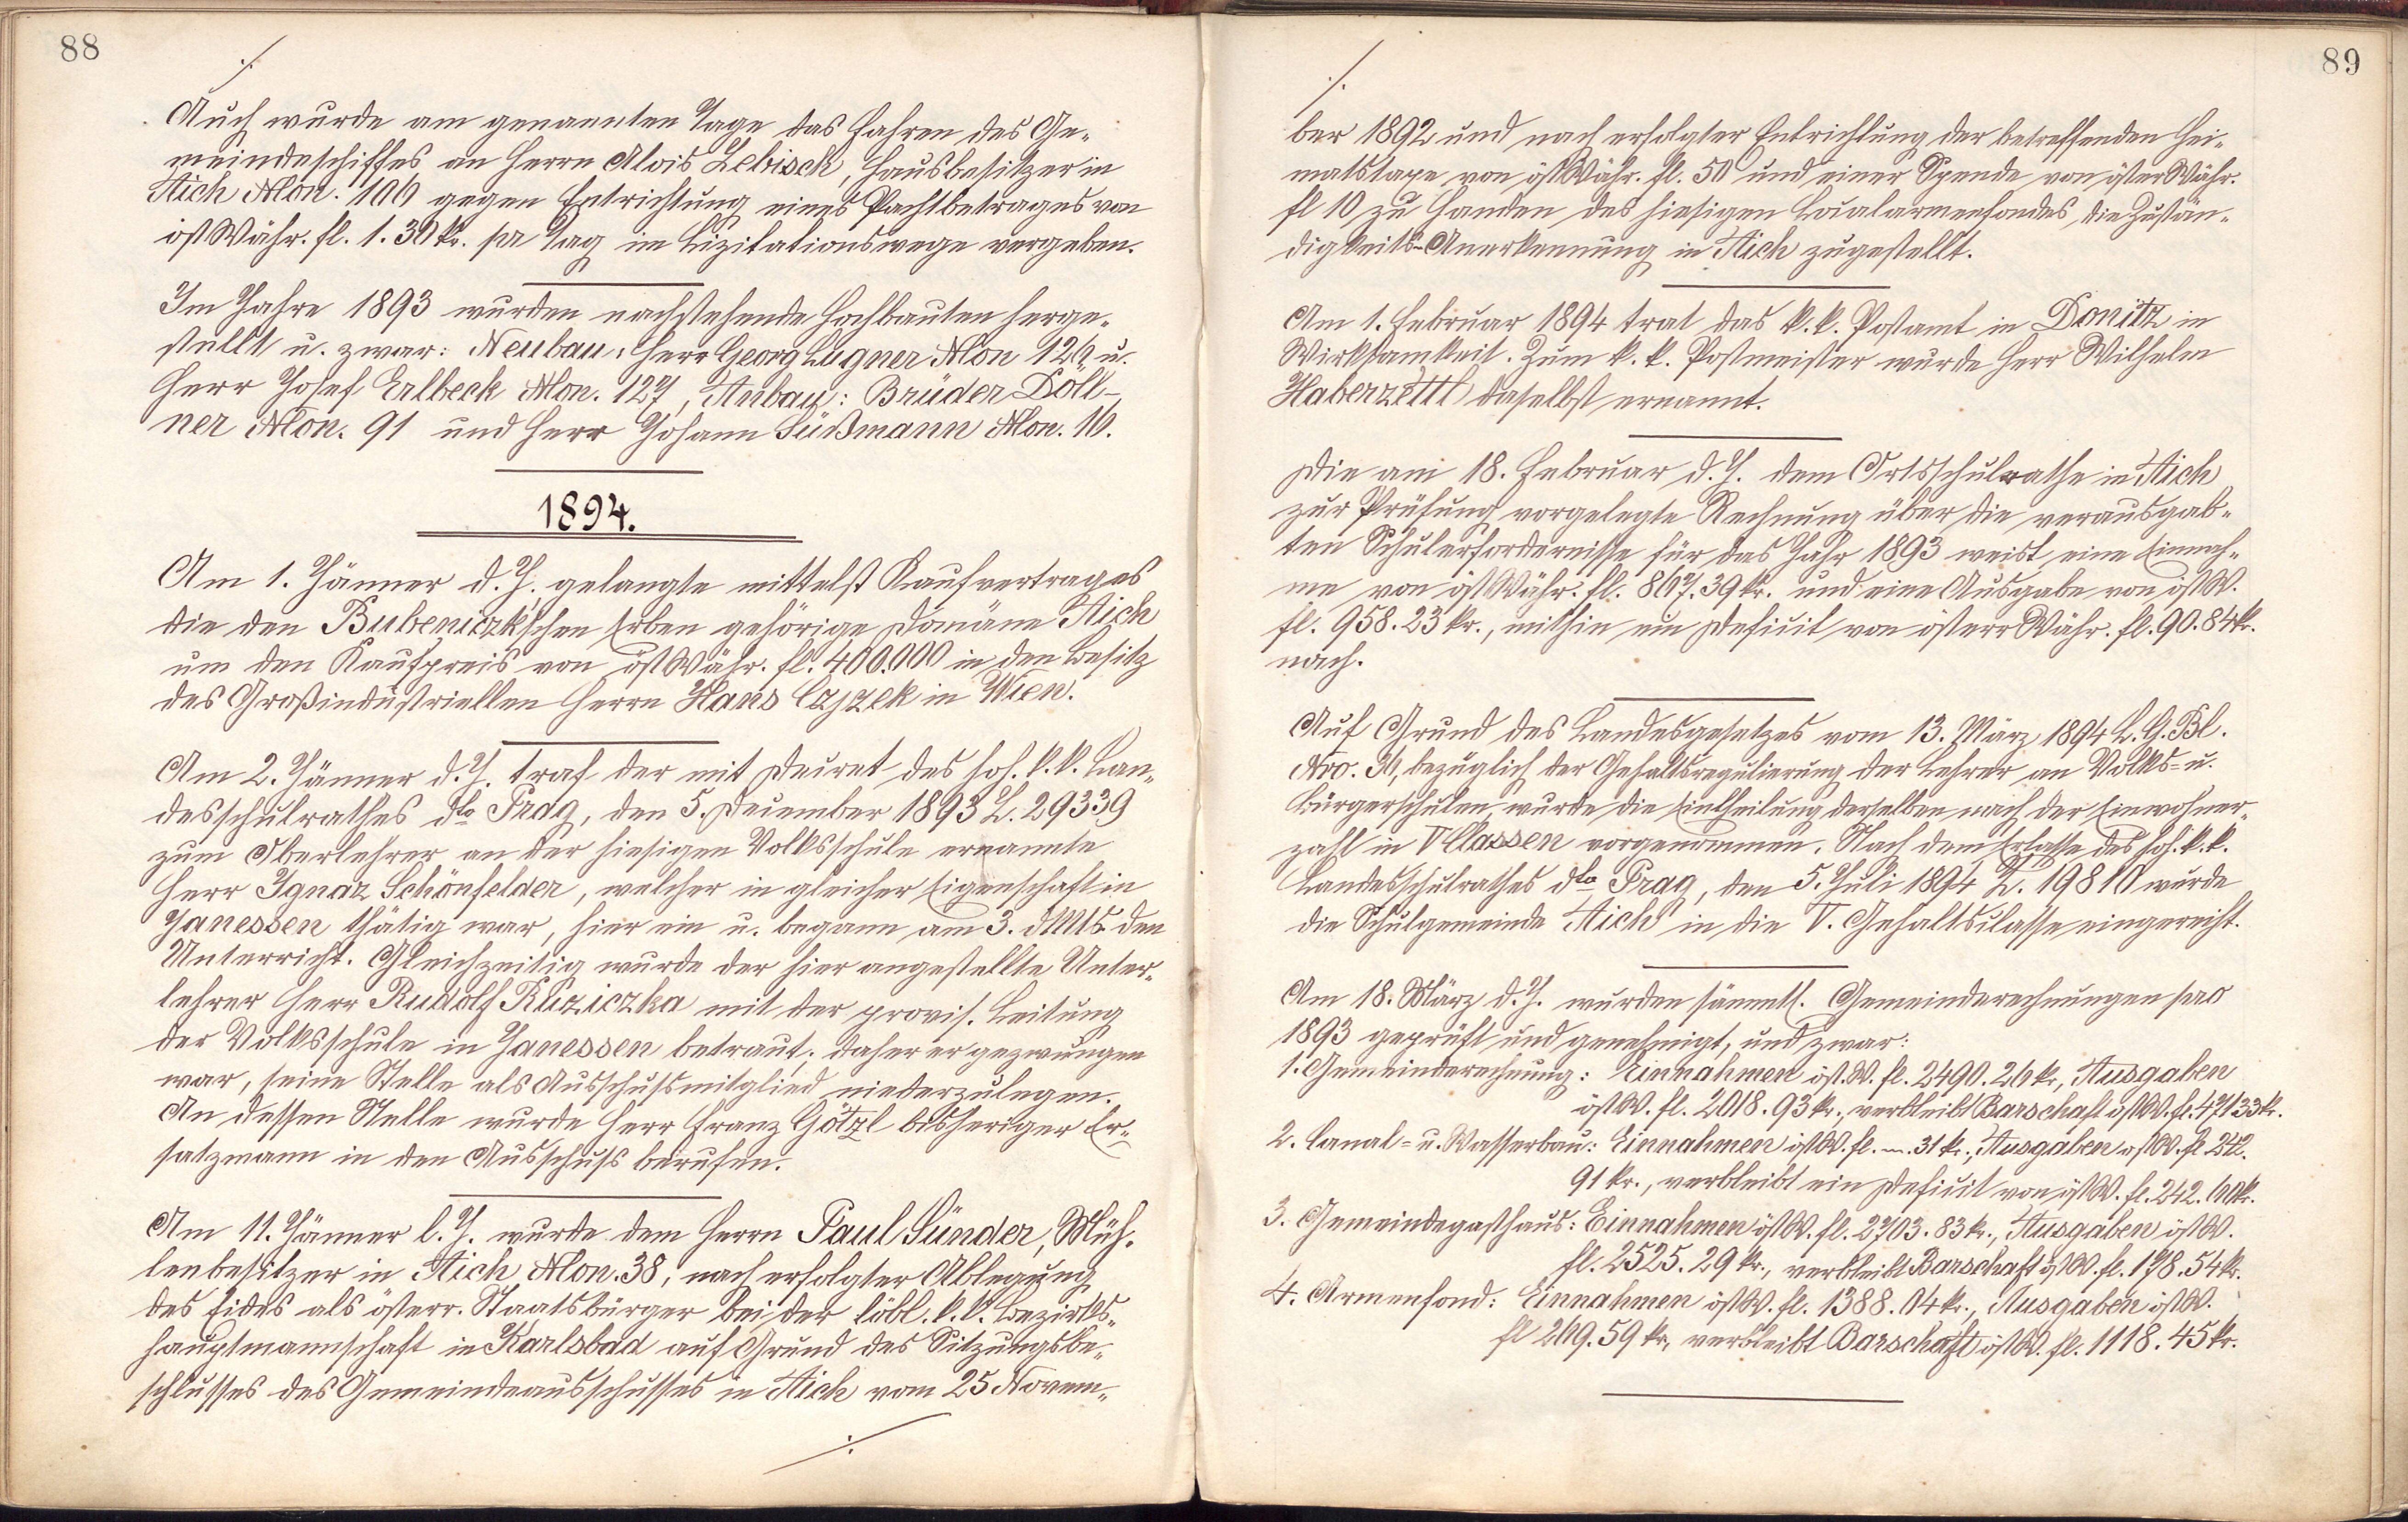 88
./.
Auch wurde am genannten Tage das Fahren des Ge-
meindeschiffes an Herrn Alois Lebisch, Hausbesitzer in
Aich NCon. 106 gegen Entrichtung eines Pachtbetrages von
öst Währ. fl. 1.30 kr. pr Tag im Lizitationswege vergeben.
Im Jahre 1893 wurden nachstehende Hochbauten herge-
stellt u. zwar: Neubau: Herr Georg Lugner NCon 126 u.
Herr Josef Erlbeck NCon. 127, Anbau: Brüder Doll-
ner NCon. 91 und Herr Johann Süßmann NCon. 16.
1894.
Am 1. Jänner d. J. gelangte mittelst Kaufvertrages
die den Bubeniczk'schen Erben gehörige Domäne Aich
um den Kaufpreis von öst Währ. fl. 400.000 in den Besitz
des Großindustriellen Herrn Hans Czjzek in Wien.
Am 2. Jänner d. J. traf der mit Decret des hoh. k. k. Lan-
desschulrathes dto Prag, den 5. December 1893 Z. 29339
zum Oberlehrer an der hiesigen Volksschule ernannte
Herr Ignaz Schönfelder, welcher in gleicher Eigenschaft in
Janessen thätig war, hier ein u. begann am 3. dMts. den
Unterricht. Gleichzeitig wurde der hier angestellte Unter-
lehrer Herr Rudolf Ruziczka mit der provis. Leitung
der Volksschule in Janessen betraut; daher er gezwungen
war, seine Stelle als Ausschußmitglied niederzulegen.
An dessen Stelle wurde Herr Franz Götzl bisheriger Er-
satzmann in den Ausschuß berufen.
Am 11. Jänner l. J. wurde dem Herrn Paul Sünder, Müh-
lenbesitzer in Aich NCon. 38, nach erfolgter Ablegung
des Eides als österr. Staatsbürger bei der löbl. k. k. Bezirks-
hauptmannschaft in Karlsbad auf Grund des Sitzungsbe-
schlusses des Gemeindeausschusses in Aich vom 25 Novem-
./.
89
./.
ber 1892 und nach erfolgter Entrichtung der betreffenden Hei-
matstaxe von öst Währ. fl. 50 und einer Spende von öster Währ.
fl 10 zu Handen des hiesigen Localarmenfondes, die Zustän-
digkeits-Anerkennung in Aich zugestellt.
Am 1. Februar 1894 trat das k. k. Postamt in Donitz in
Wirksamkeit. Zum k. k. Postmeister wurde Herr Wilhelm
Haberzettl daselbst ernannt.
Die am 18. Februar d. J. dem Ortsschulrathe in Aich
zur Prüfung vorgelegte Rechnung über die verausgab-
ten Schulerfordernisse für das Jahr 1893 weist eine Einnah-
me von öst Währ. fl. 867.39 kr. und eine Ausgabe von öst W.
fl. 958.23 kr., mithin ein Deficit von österr Währ. fl. 90.84 kr.
nach.
Auf Grund des Landesgesetzes vom 13. März 1894 L. G. Bl.
Nro. 36, bezüglich der Gehaltsregulierung der Lehrer an Volks- u.
Bürgerschulen wurde die Eintheilung derselben nach der Einwohner-
zahl in V Classen vorgenommen. Nach dem Erlasse des hoh. k. k.
Landesschulrathes dto Prag, den 5. Juli 1894 Z. 19810 wurde
die Schulgemeinde Aich in die V. Gehaltsclasse eingereiht.
Am 18. März d. J. wurden sämmtl. Gemeinderechnungen pro
1893 geprüft und genehmigt, und zwar:
1. Gemeinderechnung: Einnahmen öst. W. fl. 2490.26 kr., Ausgaben
öst W. fl. 2018.93 kr., verbleibt Barschaft öst W. fl. 471 33 kr.
2. Canal- u. Wasserbau: Einnahmen öst W. fl. -. 31 kr., Ausgaben öst W. fl 242.
91 kr., verbleibt ein Deficit von öst W. fl. 242.60 kr.
3. Gemeindegasthaus: Einnahmen öst W. fl. 2703.83 kr., Ausgaben öst W.
fl. 2525.29 kr., verbleibt Barschaft öst W. fl. 178.54 kr.
4. Armenfond: Einnahmen öst W. fl. 1388.04 kr., Ausgaben öst W.
fl 269.59 kr, verbleibt Barschaft öst W. fl. 1118.45 kr.